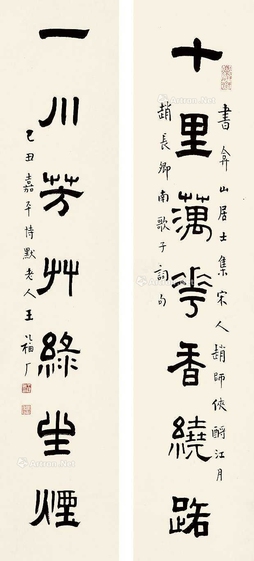 書弇山居士集宋人趙師俠酹江月
十里蕅花香繞路
趙長卿南歌子詞句
一川芳艸綠生煙
己丑嘉平持默老人王福厂